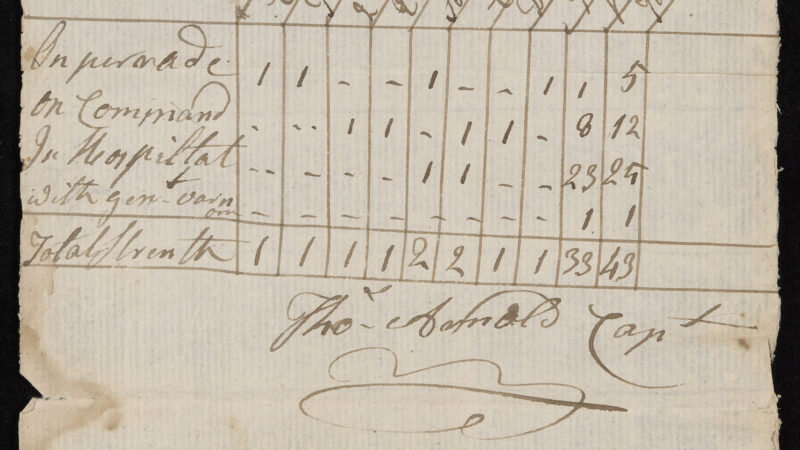 On perrade 1 1 - - 1 - - 1 1 5
on Command - -- 1 1 - 1 1 - 8 12
In Hospittal -- - - - 1 1 - - 23 25
with genl varn
om - - - - - - - - 1 1
Total Strenth 1 1 1 1 2 2 1 1 33 43
Thos Arnold Capt